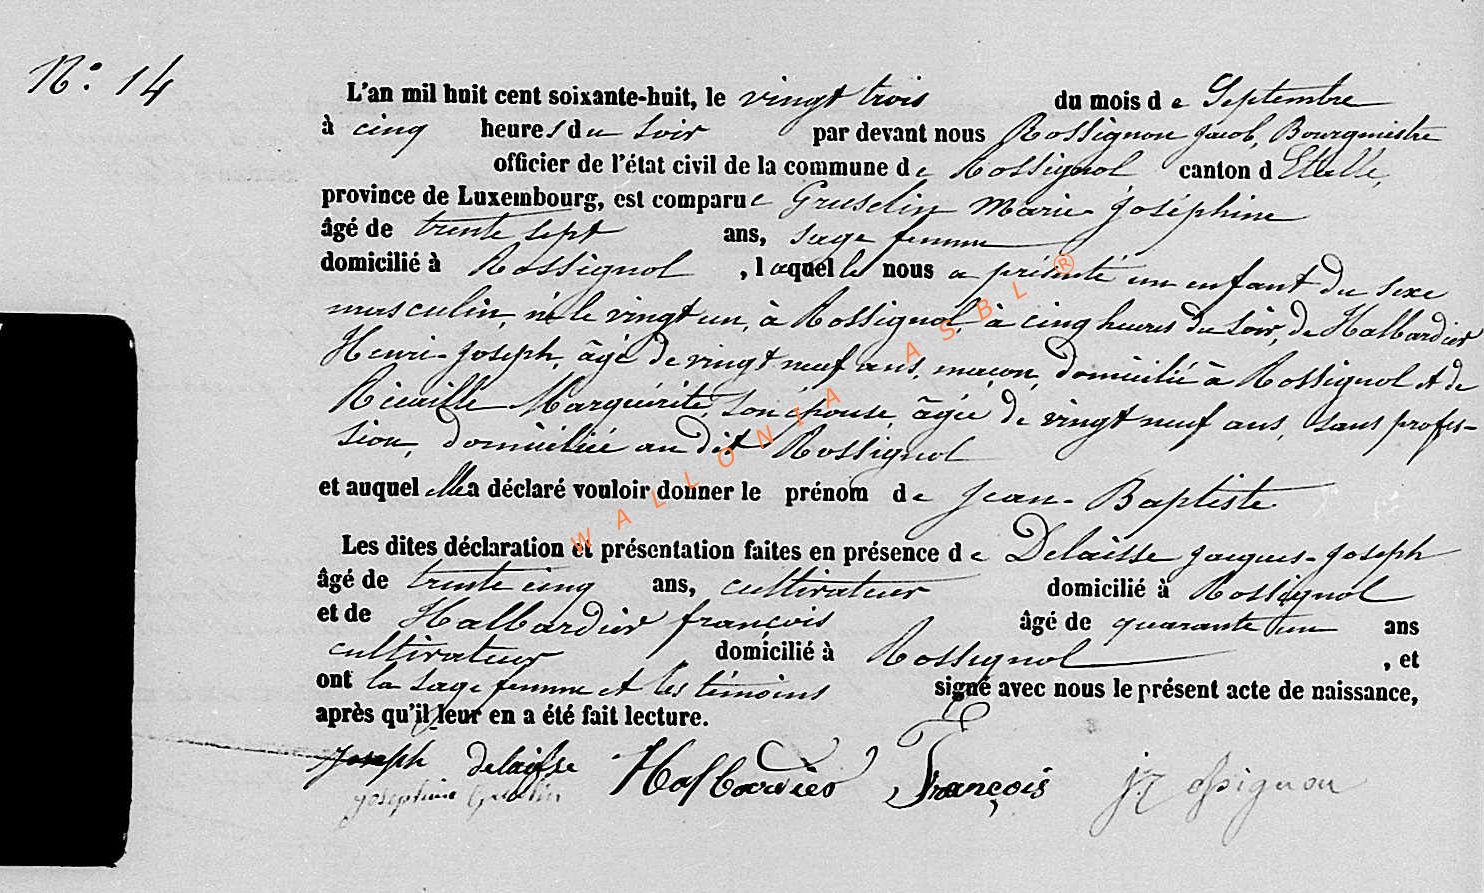 N.º 14
L'an mil huit cent soixante-huit, le vingt trois du mois de Septembre
à cinq heures du soir par devant nous Rossignon Jacob, Bourgmestre
officier de l'état civil de la commune de Rossignol canton d'Etalle,
province de Luxembourg, est comparue Gruselin Marie-Joséphine
âgé de trente sept ans, sage femme
domicilié à Rossignol, laquelle nous a présenté un enfant du sexe
masculin, né le vingt un, à Rossignol, à cinq heures du soir, de Halbardier
Henri-Joseph, âgé de vingt neuf ans, maçon, domicilié à Rossignol et de
Marguérite, son épouse, âgée de vingt neuf ans, sans profes-
sion, domiciliée au dit Rossignol
et auquel elle a déclaré vouloir donner le prénom de Jean-Baptiste
Les dites déclaration et présentation faites en présence de Delaisse Jacques-Joseph
âgé de trente cinq ans, cultivateur domicilié à Rossignol
et de Halbardier françois âgé de quarante un ans
cultivateur domicilié à Rossignol , et
ont la sage femme et les témoins signé avec nous le présent acte de naissance,
après qu'il leur en a été fait lecture.
Joseph delaisse Halbardier François J Rossignon
Joséphine Gruselin
WALLONIA ASBL ®